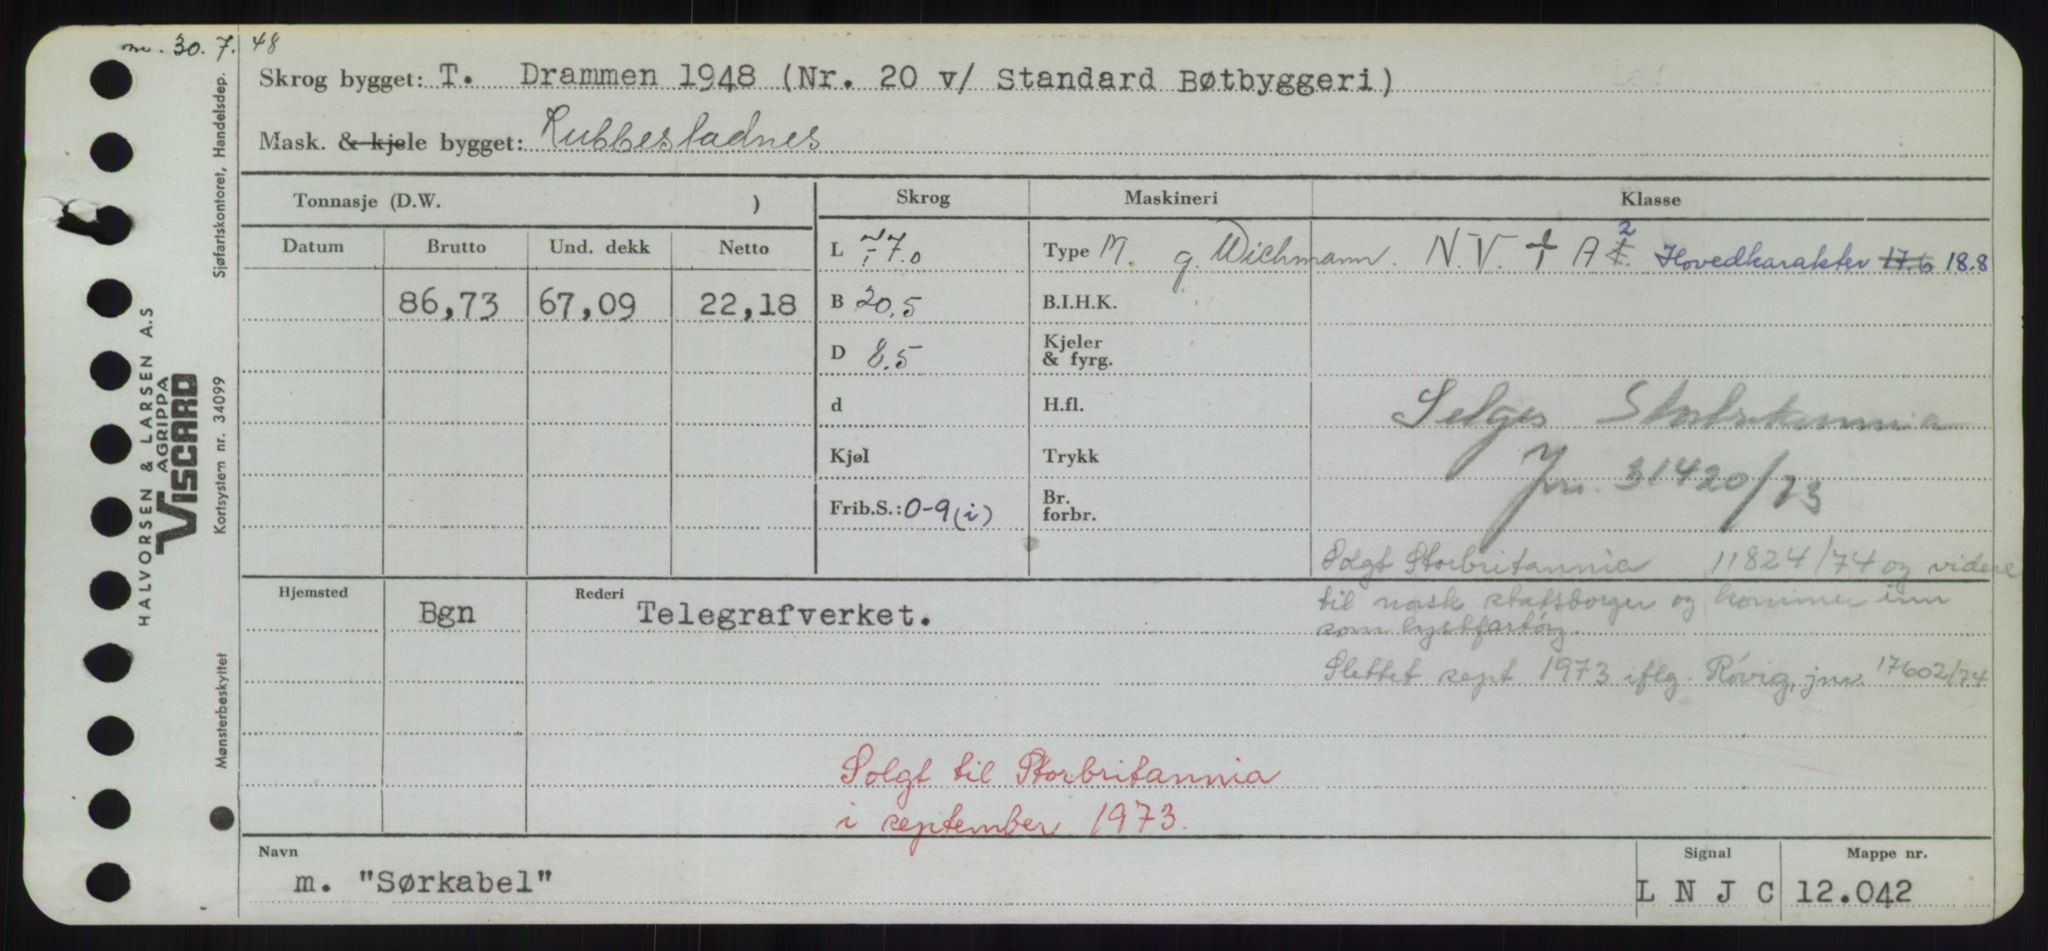 m. 30.7.48
Skrog bygget: T. Drammen 1948 (Nr. 20 v/ Standard Bøtbyggeri)
Mask. & kjele bygget: Rubbestadnes
Tonnasje (D.W. )
Skrog
Maskineri
Klasse
Datum Brutto Und. dekk Netto
L 77.0
Type M. g. Wichmann.
N.V. A 2 Hovedkarakter 17.6 18.8
86,73 67,09 22,18
B 20,5
B.I.H.K.
D 8.5
Kjeler
& fyrg.
d
H.fl.
Selges Storbritannia
Kjøl
Trykk
Jnr. 31420/73
Frib.S.: 0-9 (i)
Br.
forbr.
Solgt Storbritannia 11824/74 og videre
til norsk statsborger og kommer inn
som lystfartøy.
Slettet sept 1973 iflg. Rövig, jnr. 17602/74
Hjemsted Bgn
Rederi Telegrafverket.
Solgt til Storbritannia
i september 1973.
Navn
m. "Sørkabel"
Signal
L N J C
Mappe nr.
12.042
HALVORSEN & LARSEN A.S
AGRIPPA
VISCARD
Sjøfartskontoret, Handelsdep.
Kortsystem nr. 34099
Mønsterbeskyttet